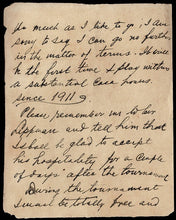 So much as I like to go, I am
sorry to say I can go no further
in the matter of terms. It will
be the first time I play within
a substantial cash bonus
since 1911.
Please remember me to Mr
Lippman and tell him that
I shall be glad to accept
his hospitality for a couple
of days after the tournament
During the tournament
I want to be totally free and